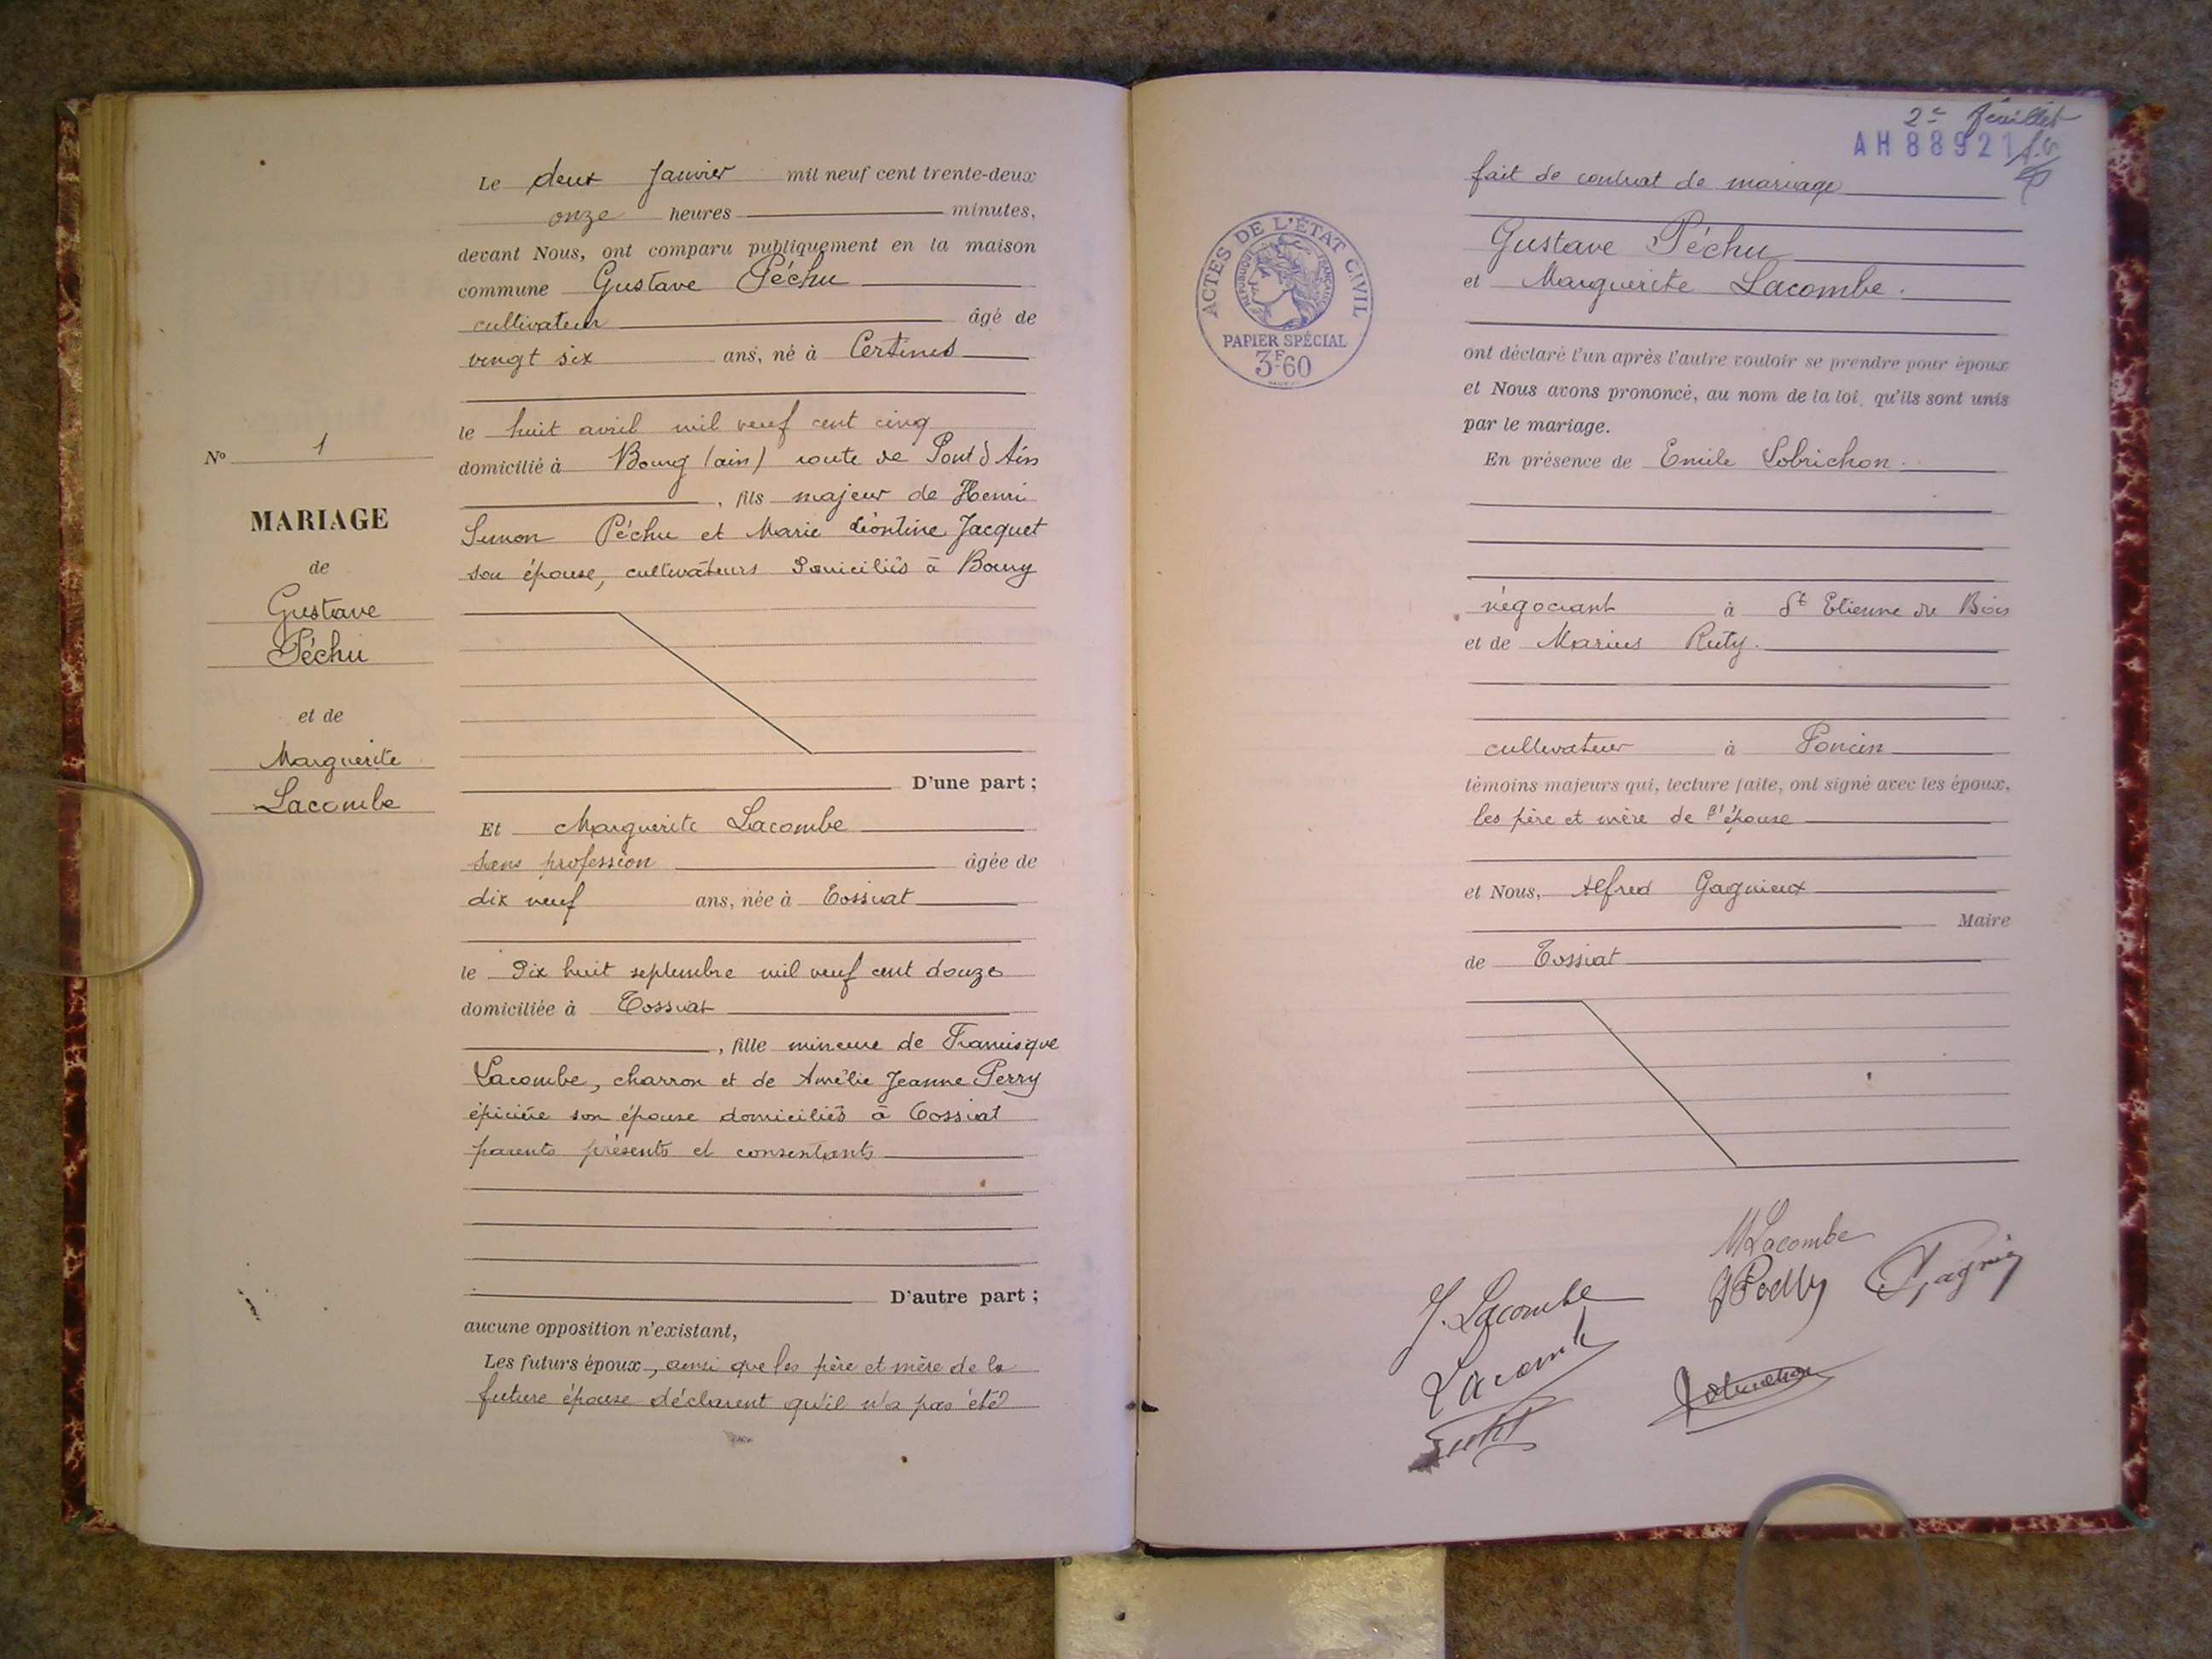 Le deux Janvier mil neuf cent trente-deux
onze heures minutes,
devant Nous, ont comparu publiquement en la maison
commune Gustave Péchu
cultivateur âgé de
vingt six ans, né à Certines
le huit avril mil neuf cent cinq
domicilié à Bourg (ain) route de Pont d'Ain
, fils majeur de Henri
Simon Péchu et Marie Léontine Jacquet
son épouse, cultivateurs domiciliés à Bourg
D'une part ;
Et Marguerite Lacombe
sans profession âgée de
dix neuf ans, née à Tossiat
le dix huit septembre mil neuf cent douze
domiciliée à Tossiat
, fille mineure de Francisque
Lacombe, charron et de Amélie Jeanne Perry
épicière son épouse domiciliés à Tossiat
parents présents et consentants
D'autre part ;
aucune opposition n'existant,
Les futurs époux, ainsi que les père et mère de la
future épouse déclarent qu'il n'a pas été
N° 1
MARIAGE
de
Gustave
Péchu
et de
Marguerite
Lacombe
2e feuillet
AH88921
ACTES DE L'ÉTAT CIVIL
RÉPUBLIQUE FRANÇAISE
PAPIER SPÉCIAL
3F60
fait de contrat de mariage
Gustave Péchu
et Marguerite Lacombe.
ont déclaré l'un après l'autre vouloir se prendre pour époux
et Nous avons prononcé, au nom de la loi, qu'ils sont unis
par le mariage.
En présence de Emile Lobrichon.
négociant à St Etienne du Bois
et de Marius Ruty.
cultivateur à Poncin
témoins majeurs qui, lecture faite, ont signé avec les époux,
les père et mère de l'épouse
et Nous, Alfred Gagnieux
Maire
de Tossiat
M Lacombe
J. Lacombe
Lacomb